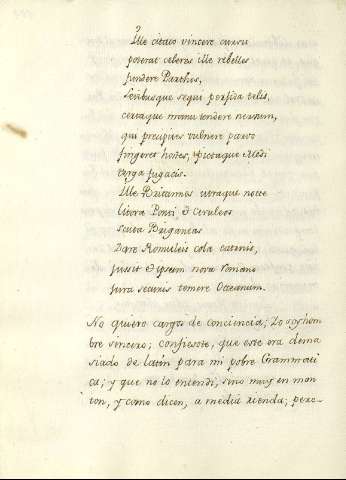 Ille citato vincere cursu
poterat celeres ille rebelles
fundere Parthos,
levibusque sequi persida telis,
certaque manu tendere nervum,
qui precipites vulnere parvo
fingeret hostes, pictaque Medi
terga fugacis.
Ille Britannos ultraque note
litora Ponti, & ceruleos
scuta Brigantas
Dare Romuleis cola catenis,
jussit & ipsum nova Romane
jura securis tremere Oceanum.
No quiero cargos de conciencia; Yo soy hom
bre sincero; confiesote, que este era dema
siado de latin para mi pobre Grammati
ca; y que no lo entendi, sino muy en mon
ton, y como dicen, a media rienda; pero-